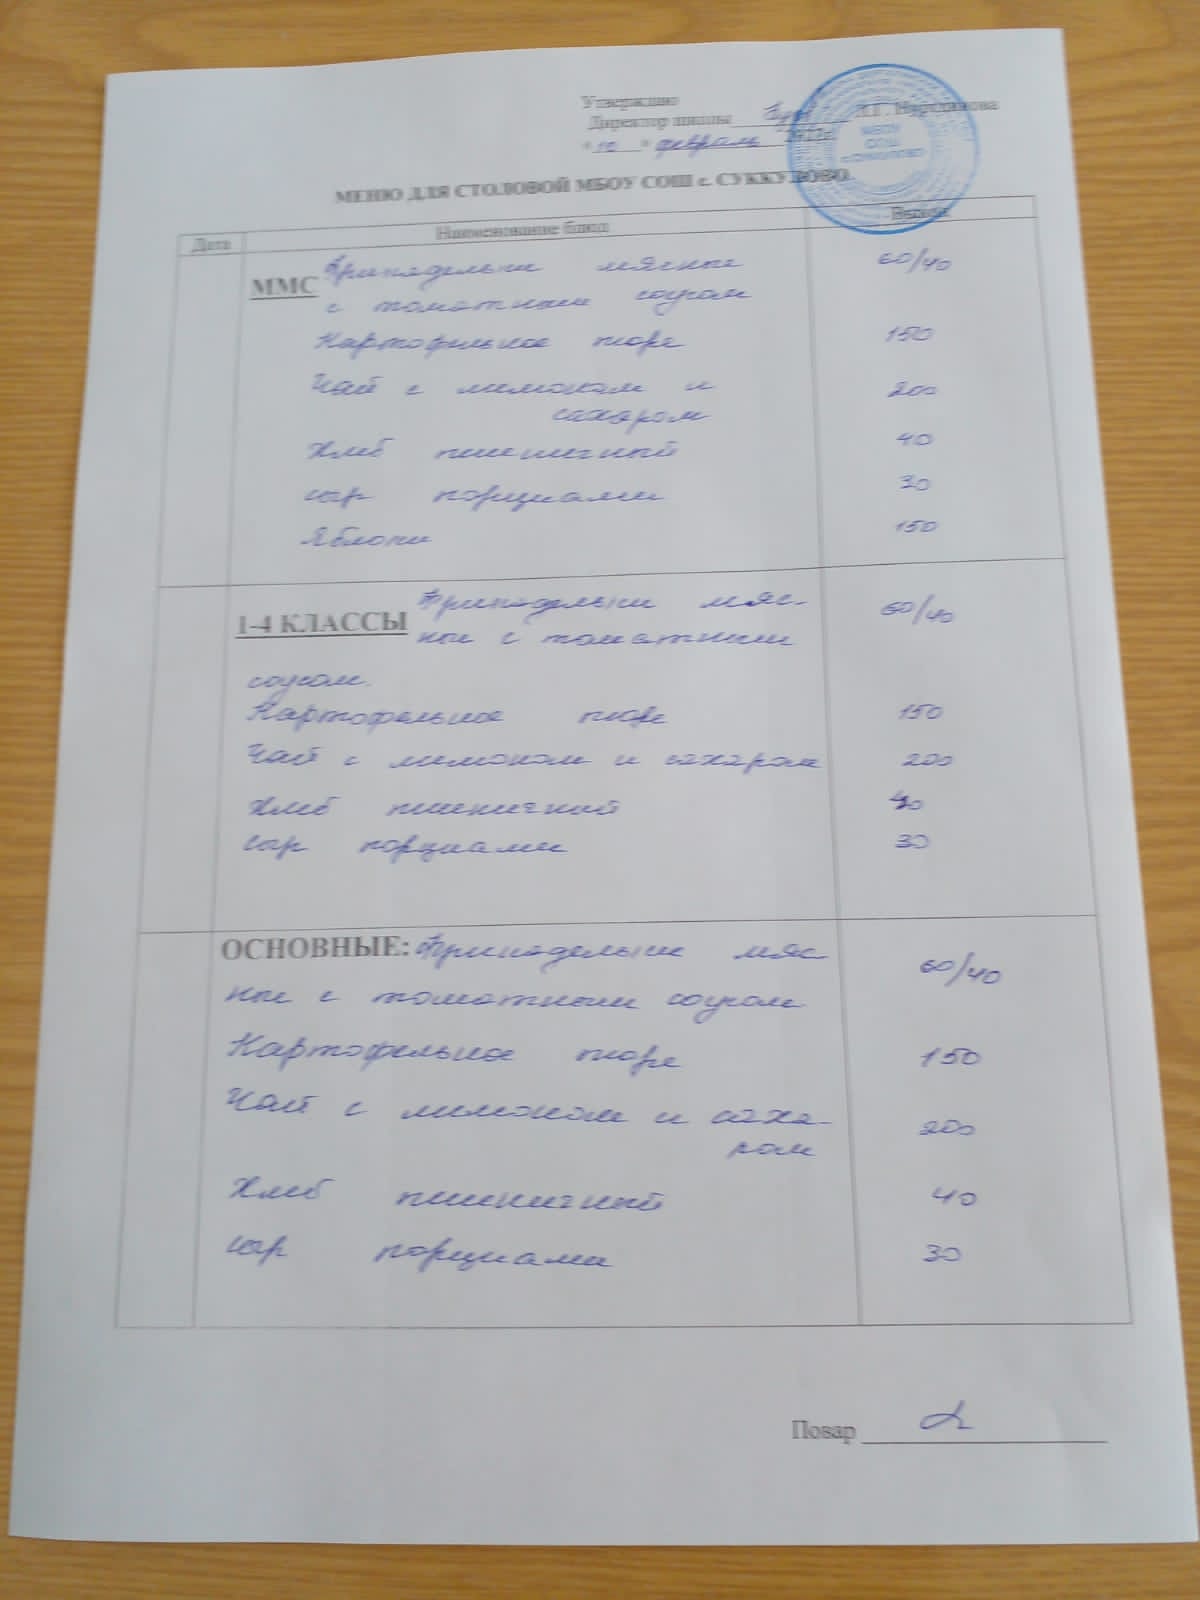 Утверждаю
Директор школы Л.Г.
"10" февраль 2022г.
МБОУ
СОШ
МЕНЮ ДЛЯ СТОЛОВОЙ МБОУ СОШ с. СУККУЛОВО.
Дата Наименование блюд Выход
ММС Фрикадельки мясные 60/40
с томатным соусом
Картофельное пюре 150
Чай с лимоном и 200
сахаром
Хлеб пшеничный 40
сыр порциами 30
Яблоки 150
1-4 КЛАССЫ Фрикадельки мяс- 60/40
ные с томатным
соусом.
Картофельное пюре 150
Чай с лимоном и сахаром 200
Хлеб пшеничный 40
Сыр порциами 30
ОСНОВНЫЕ: Фрикадельки мяс 60/40
ные с томатным соусом
Картофельное пюре 150
Чай с лимоном и саха- 200
ром
Хлеб пшеничный 40
сыр порциами 30
Повар